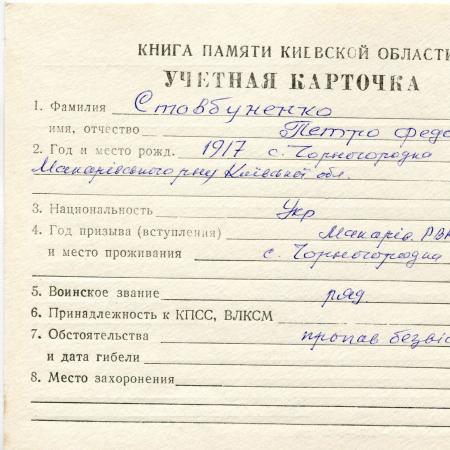 КНИГА ПАМЯТИ КИЕВСКОЙ ОБЛАСТИ
УЧЕТНАЯ КАРТОЧКА
1. Фамилия Стовбуненко
имя, отчество Петро Федо
2. Год и место рожд. 1917 с. Чорногородка
Макарівського р-ну Київської обл.
3. Национальность Укр
4. Год призыва (вступления) Макарів. РВК
и место проживания с. Чорногородка
5. Воинское звание ряд.
6. Принадлежность к КПСС, ВЛКСМ
7. Обстоятельства пропав безвіс
и дата гибели
8. Место захоронения